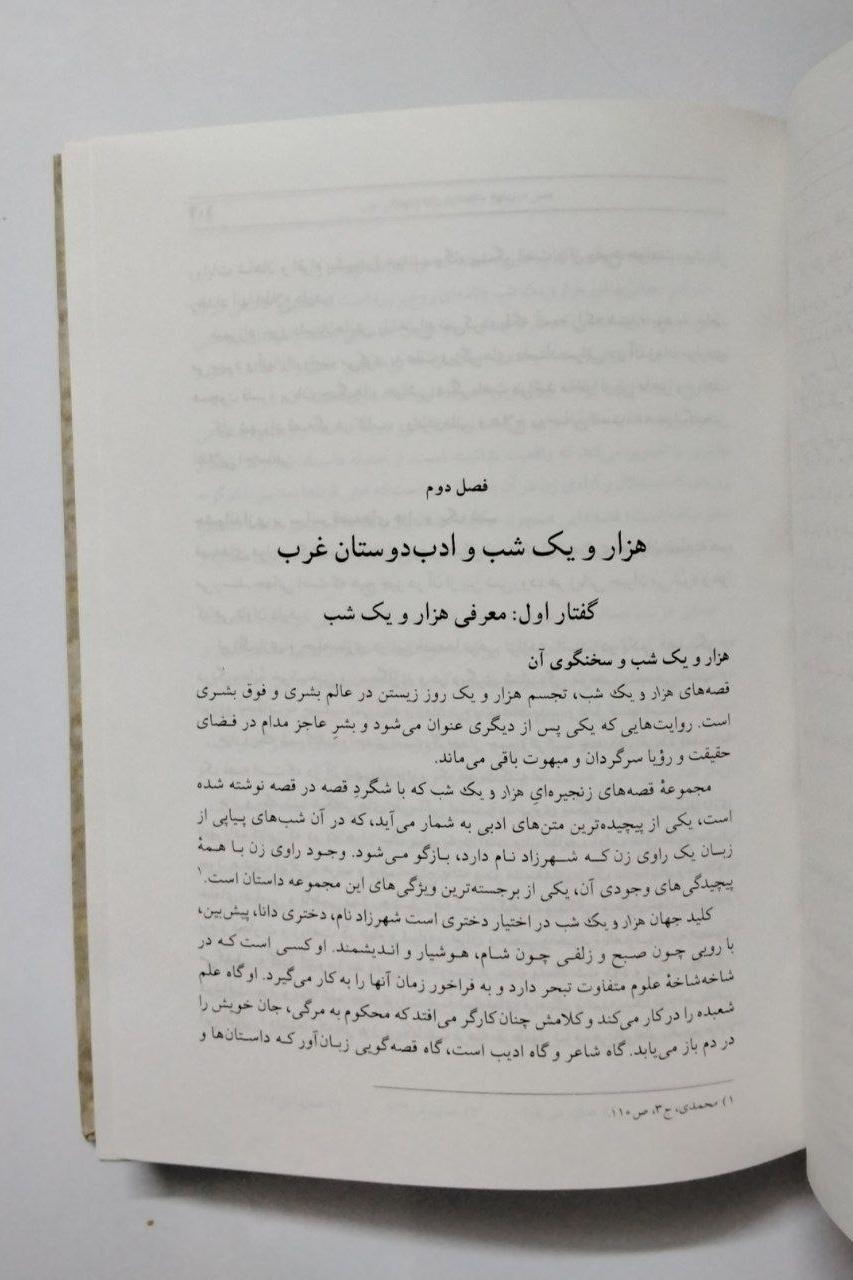 فصل دوم
هزار و یک شب و ادب‌دوستان غرب
گفتار اول: معرفی هزار و یک شب
هزار و یک شب و سخنگوی آن
قصه‌های هزار و یک شب، تجسم هزار و یک روز زیستن در عالم بشری و فوق بشری
است. روایت‌هایی که یکی پس از دیگری عنوان می‌شود و بشرِ عاجز مدام در فضای
حقیقت و رؤیا سرگردان و مبهوت باقی می‌ماند.
مجموعهٔ قصه‌های زنجیره‌ایِ هزار و یک شب که با شگردِ قصه در قصه نوشته شده
است، یکی از پیچیده‌ترین متن‌های ادبی به شمار می‌آید، که در آن شب‌های پیاپی از
زبان یک راوی زن که شهرزاد نام دارد، بازگو می‌شود. وجود راوی زن با همهٔ
پیچیدگی‌های وجودی آن، یکی از برجسته‌ترین ویژگی‌های این مجموعه داستان است.۱
کلید جهان هزار و یک شب در اختیار دختری است شهرزاد نام، دختری دانا، پیش‌بین،
با رویی چون صبح و زلفی چون شام، هوشیار و اندیشمند. او کسی است که در
شاخه‌شاخهٔ علوم متفاوت تبحر دارد و به فراخور زمان آنها را به کار می‌گیرد. او گاه علم
شعبده را در کار می‌کند و کلامش چنان کارگر می‌افتد که محکوم به مرگی، جان خویش را
در دم باز می‌یابد. گاه شاعر و گاه ادیب است، گاه قصه‌گویی زبان‌آور که داستان‌ها و
۱) محمدی، ج۳، ص۱۱۰.